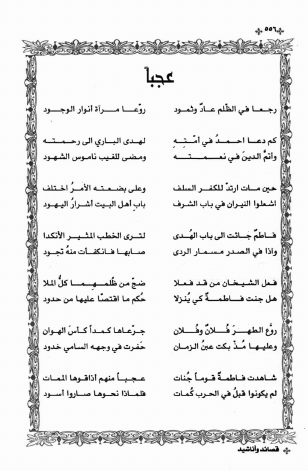 ٥٥٦
عجباً
رجعا في الظلم عادٌ وثمود روّعا مرآة أنوار الوجود
كم دعا احمدُ في أمّتهِ لهدى الباري الى رحمته
وأتم الدينَ في نعمته ومضى للغيب ناموس الشهود
حين مات ارتدّ للكفر السلف وعلى بضعته الأمرُ اختلف
اشعلوا النيران في باب الشرف بابِ أهل البيت أشرارُ اليهود
فاطمٌ جائت الى باب الهُدى لترى الخطب المثير الأنكدا
وإذا في الصدر مسمار الردى صابها فانكفأت منهُ تجود
فعل الشيخان من قد فعلا ضجّ من ظُلمهما كلُّ الملا
هل جنت فاطمةٌ كي يُنزلا حُكم ما اقتصّا عليها من حدود
روّع الطهرَ فُلانٌ وفُلان جرّعاها كمداً كأسَ الهوان
وعليها مُذ بكت عينُ الزمان حَفرت في وجهه السامي خدود
شاهدت فاطمةٌ قوماً جُنات عجباً منهم أذاقوها الممات
لم يكونوا قبلُ في الحرب كُمات فلماذا نحوها صاروا أسود
قصائد وأناشيد